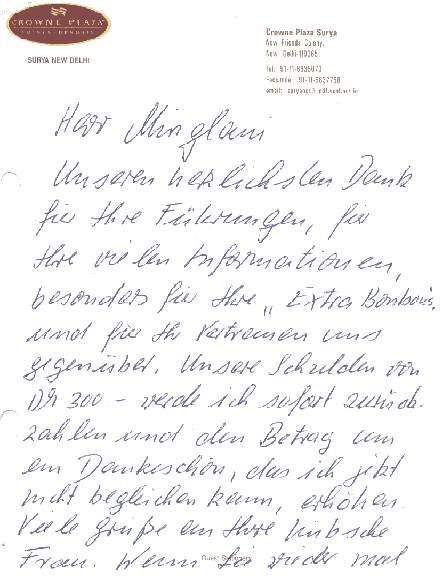 CROWNE PLAZA
SURYA NEW DELHI
Crowne Plaza Surya
New Friends Colony,
New Delhi-110065
Tel: 91-11-6835070
Facsimile: 91-11-6837758
email:
Herr Minglani
Unseren herzlichsten Dank
für Ihre Führungen, für
Ihre vielen Informationen,
besonders für Ihre „Extra Bonbons",
und für Ihr Vertrauen uns
gegenüber. Unsere Schulden von
300 - werde ich sofort zurück-
zahlen und den Betrag um
ein Dankeschön, das ich jetzt
nicht begleichen kann, erhöhen.
Viele Grüße an Ihre hübsche
Frau. Wenn Sie wieder mal
Guest Stationery